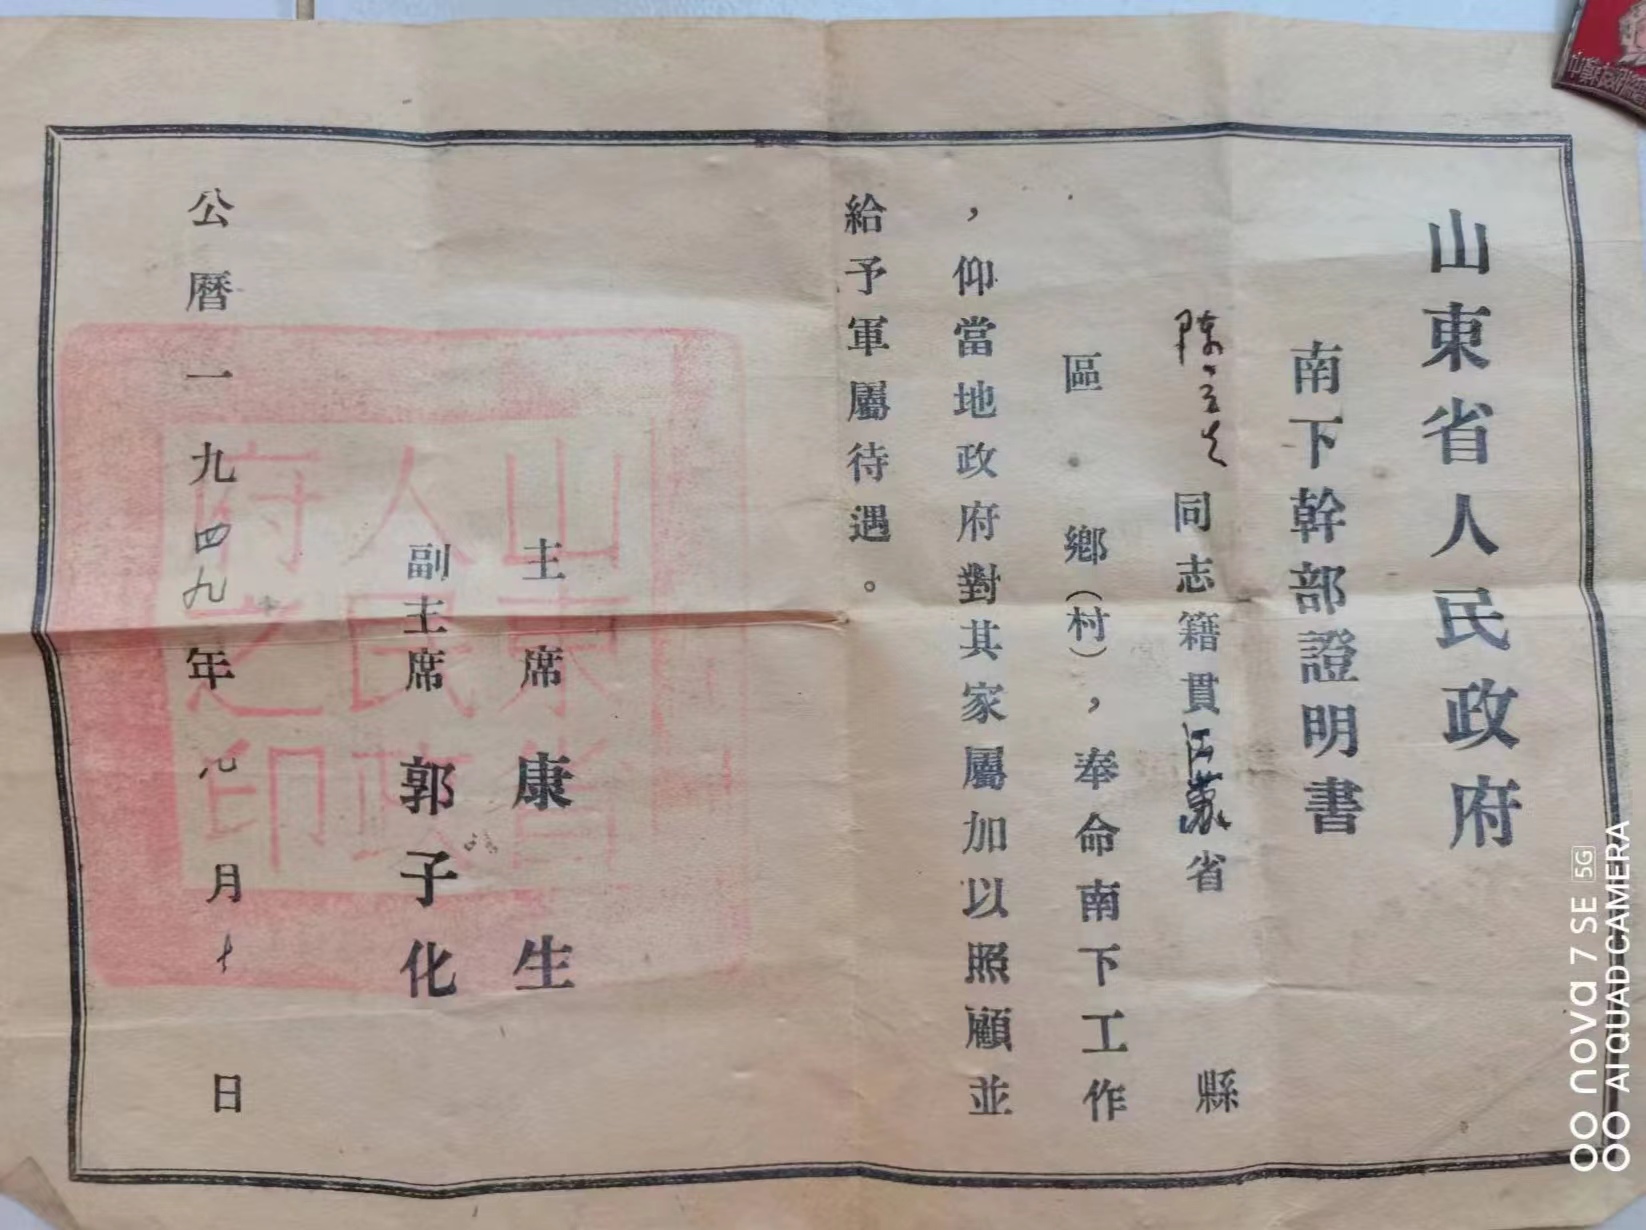 山東省人民政府
南下幹部證明書
陳立七同志籍貫江蘇省 縣
區 鄉(村),奉命南下工作
,仰當地政府對其家屬加以照顧並
給予軍屬待遇。
主席 康生
副主席 郭子化
公曆一九四九年九月十日
山東省人民政府之印
nova 7 SE 5G
AI QUAD CAMERA